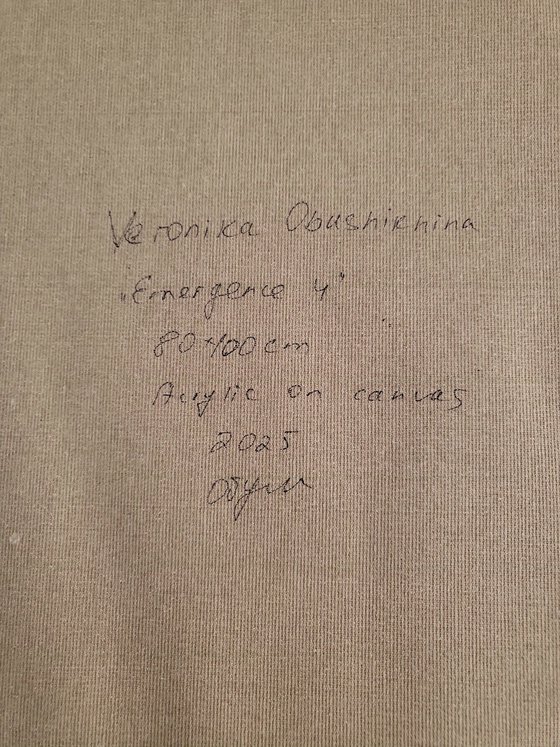 Veronika Obushikhina
„Emergence 4"
80×100cm
Acrylic on canvas
2025